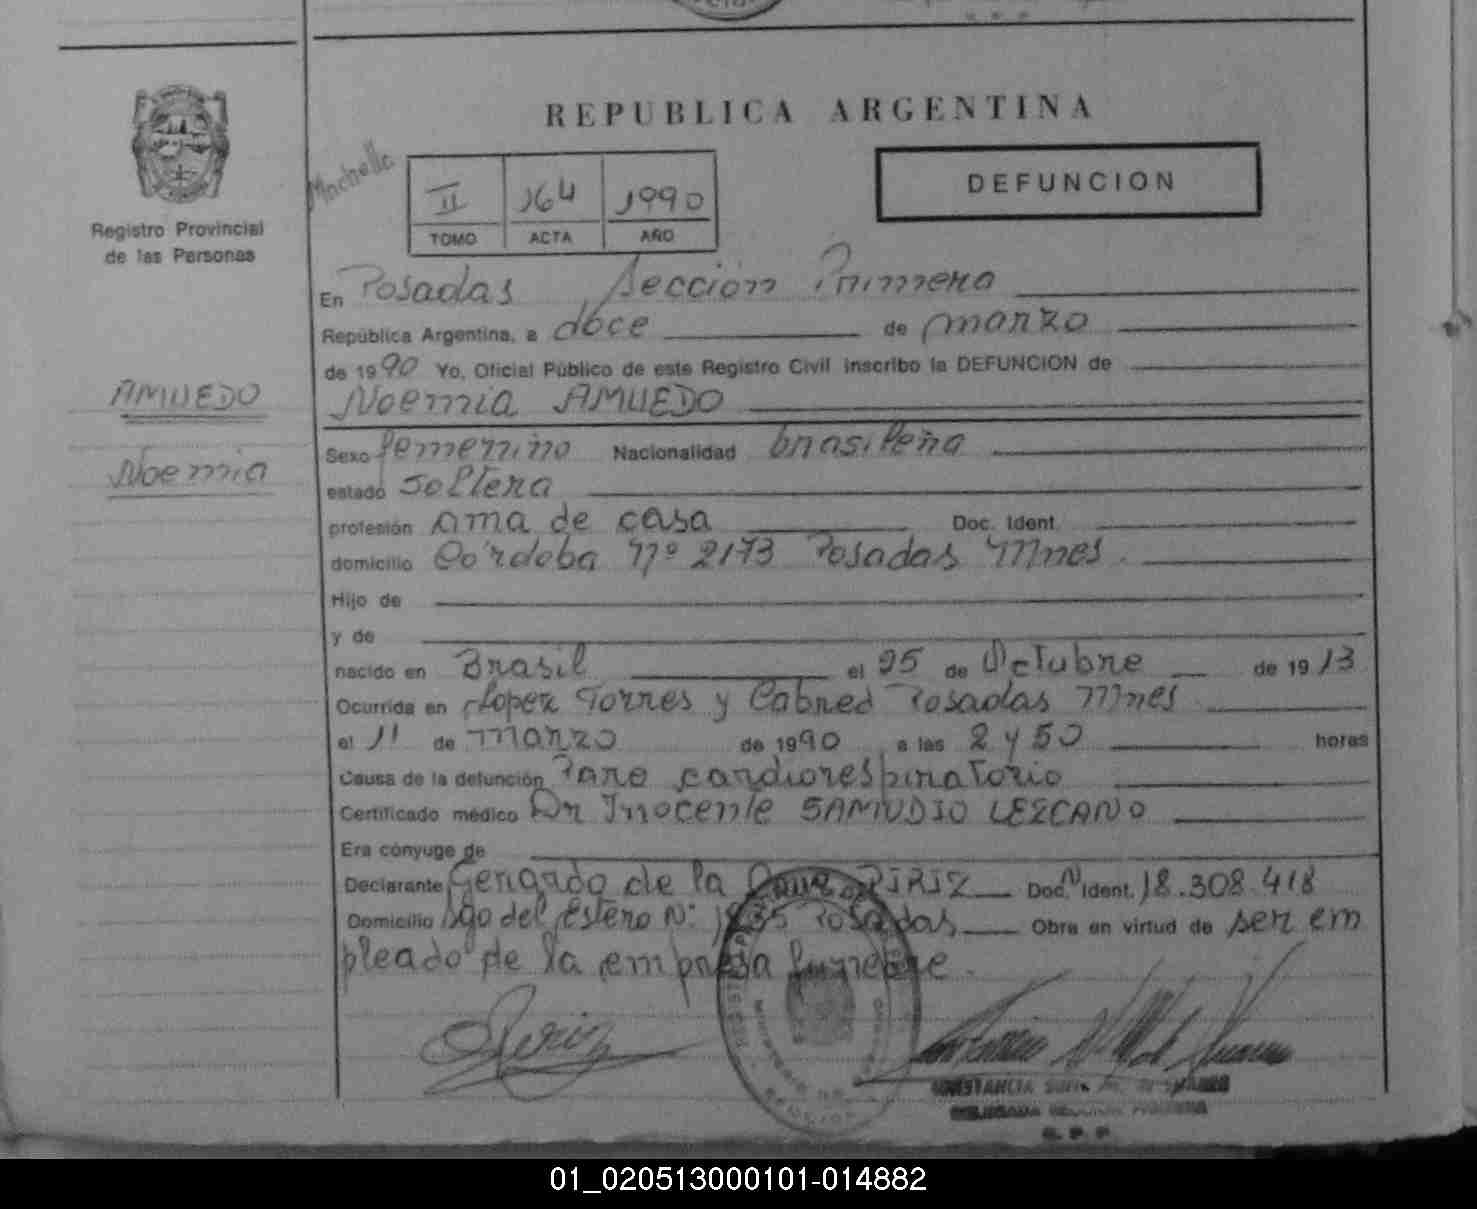 REPUBLICA ARGENTINA
Registro Provincial
de las Personas
II 164 1990
TOMO ACTA AÑO
DEFUNCION
En Posadas Sección Primera
República Argentina, a doce de marzo
de 1990 Yo, Oficial Público de este Registro Civil inscribo la DEFUNCION de
Noemia AMUEDO
AMUEDO
Noemia
Sexo femenino Nacionalidad brasileña
estado soltera
profesión ama de casa Doc. Ident.
domicilio Córdoba Nº 2173 Posadas Mnes.
Hijo de
y de
nacido en Brasil el 25 de Octubre de 1913
Ocurrida en Lopez Torres y Cabred Posadas Mnes
el 11 de marzo de 1990 a las 2 y 50 horas
Causa de la defunción Paro cardiorespiratorio
Certificado médico Dr Inocente SAMUDIO LEZCANO
Era cónyuge de
Declarante Gerardo de la Cruz PIRIZ Doc. N Ident. 18.308.418
Domicilio Sgo del Estero N: 1835 Posadas Obra en virtud de ser em
pleado de la empresa funebre.
R. P. P.
01_020513000101-014882